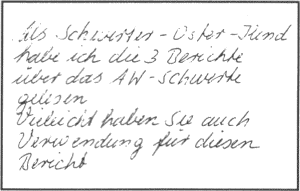 Als Schwerter-Oster-Kund
habe ich die 3 Berichte
über das AW-Schwerte
gelesen
Vielleicht haben Sie auch
Verwendung für diesen
Bericht